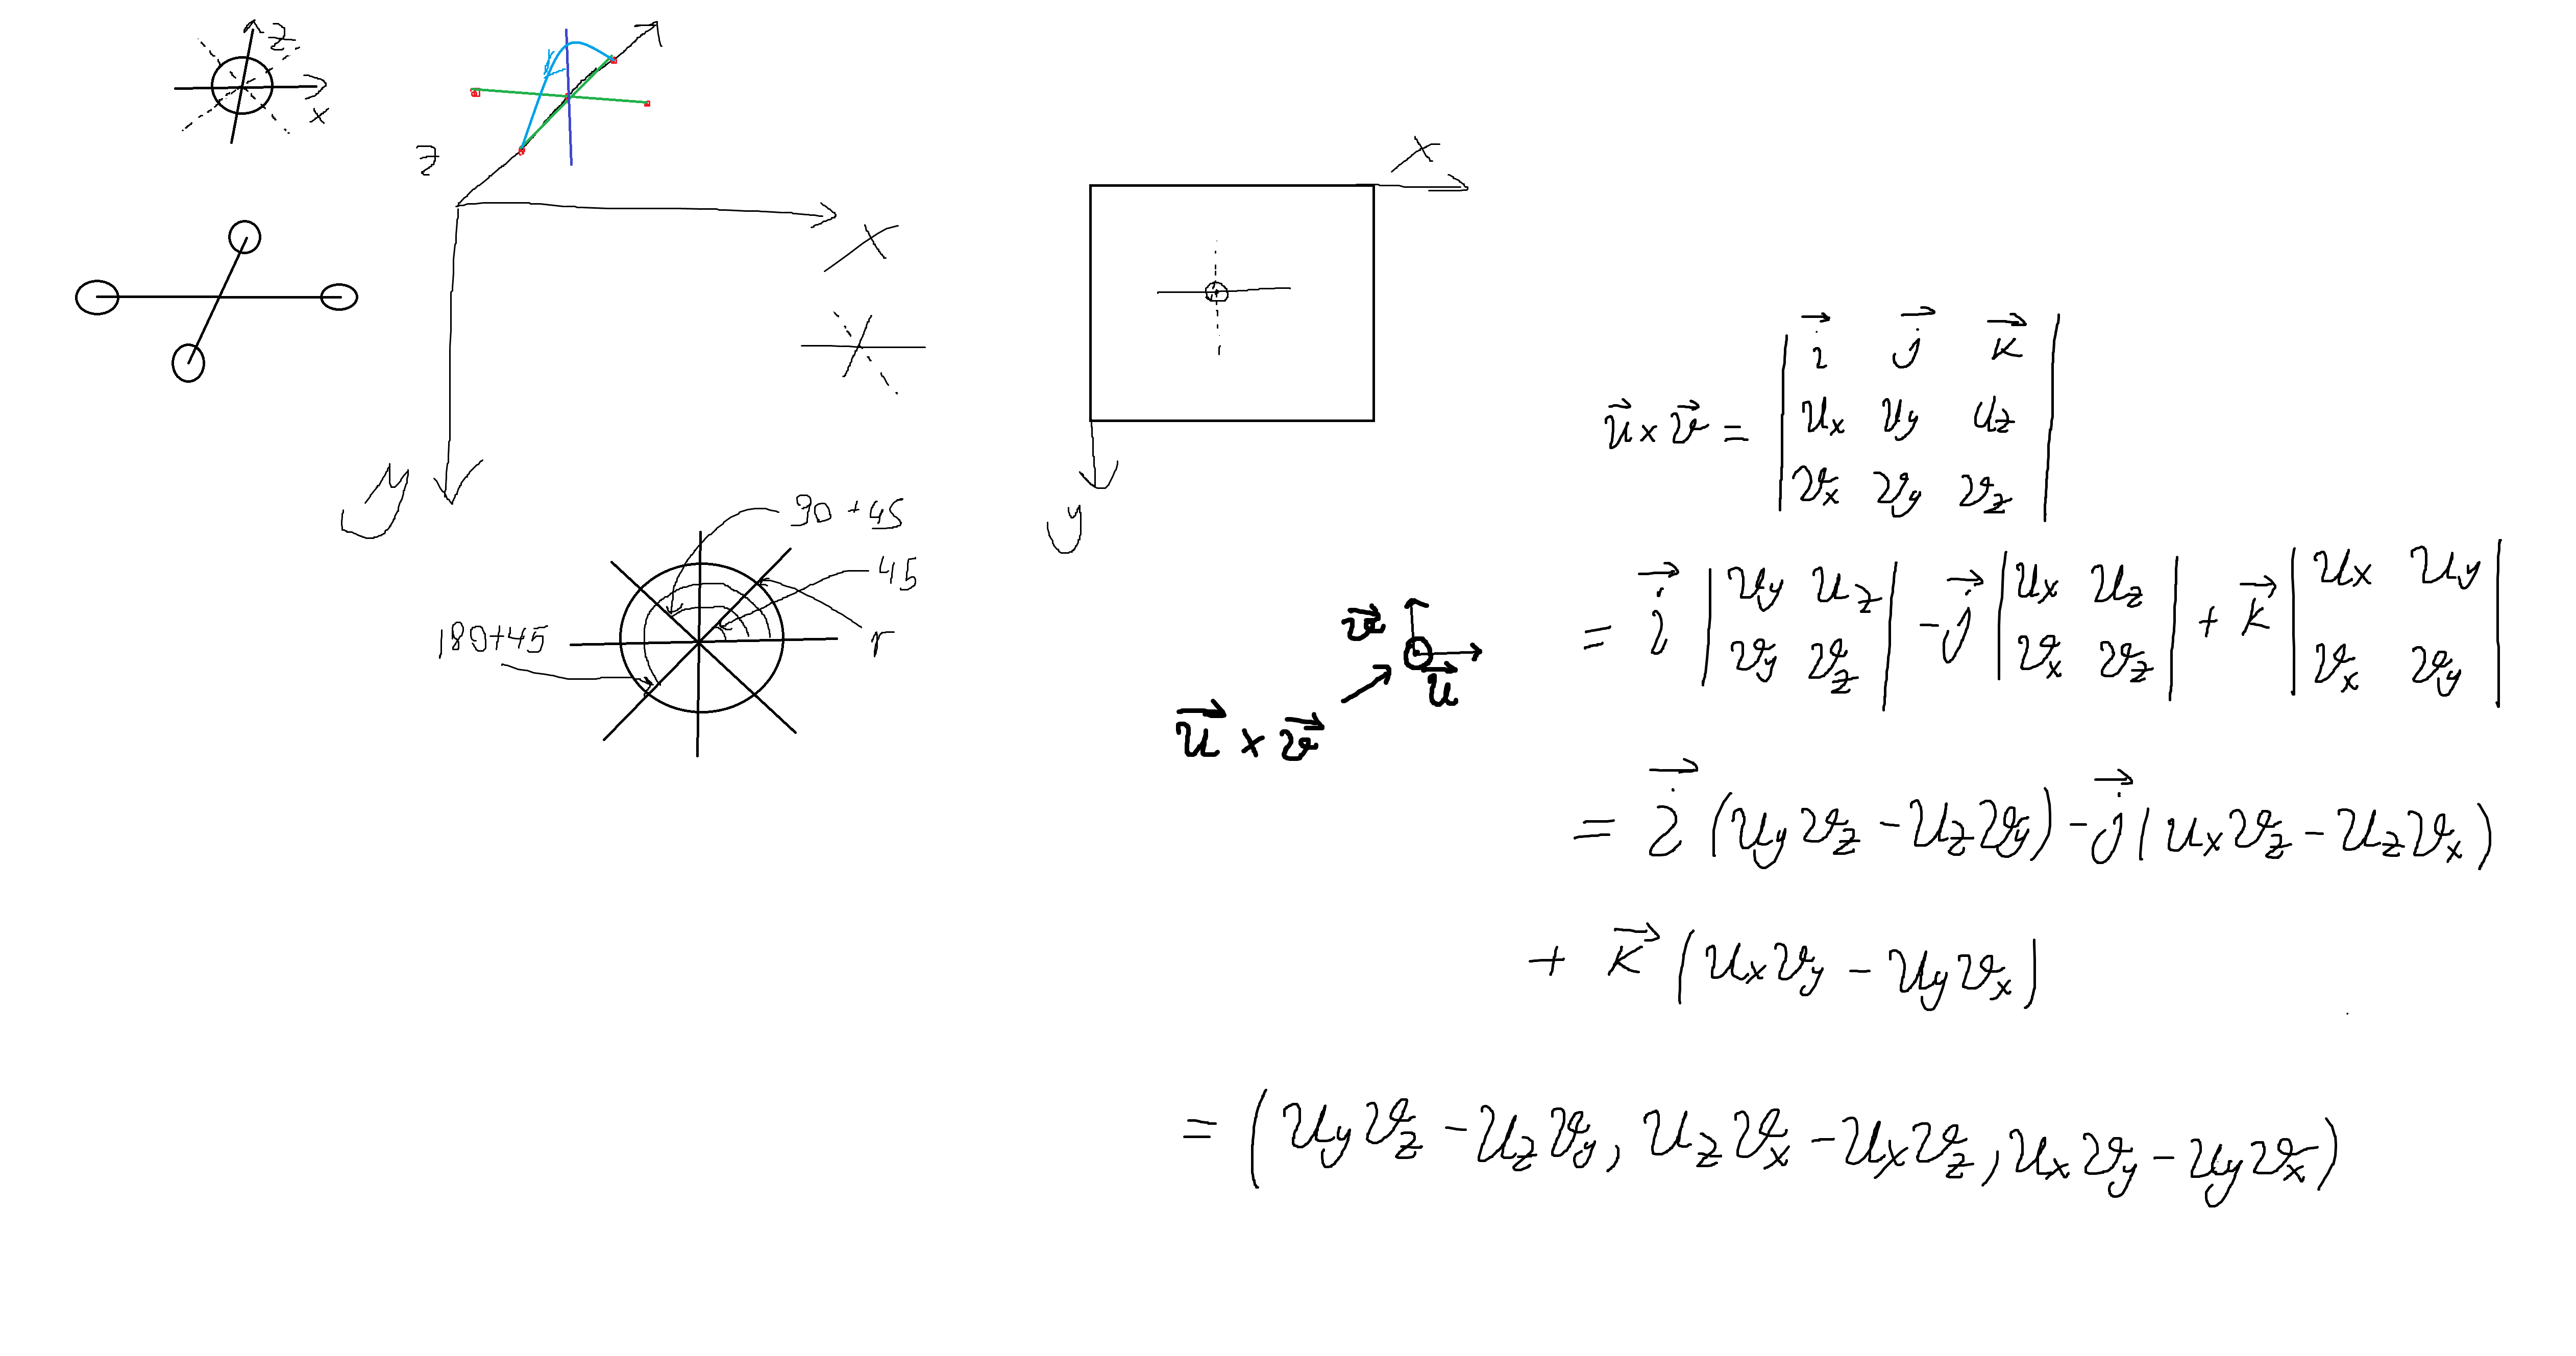 z
x
z
x
y
x
y
90 + 45
45
180+45
r
$\vec{v}$
$\vec{u}$
$\vec{u} \times \vec{v}$
$\vec{u} \times \vec{v} = \begin{vmatrix} \vec{i} & \vec{j} & \vec{k} \\ u_x & u_y & u_z \\ v_x & v_y & v_z \end{vmatrix}$
$= \vec{i} \begin{vmatrix} u_y & u_z \\ v_y & v_z \end{vmatrix} - \vec{j} \begin{vmatrix} u_x & u_z \\ v_x & v_z \end{vmatrix} + \vec{k} \begin{vmatrix} u_x & u_y \\ v_x & v_y \end{vmatrix}$
$= \vec{i} (u_y v_z - u_z v_y) - \vec{j} (u_x v_z - u_z v_x)$
$+ \vec{k} (u_x v_y - u_y v_x)$
$= (u_y v_z - u_z v_y, u_z v_x - u_x v_z, u_x v_y - u_y v_x)$